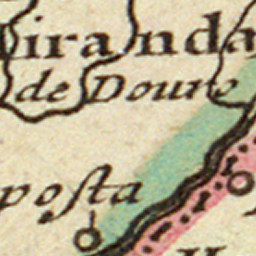 iranda
de Douro
posta